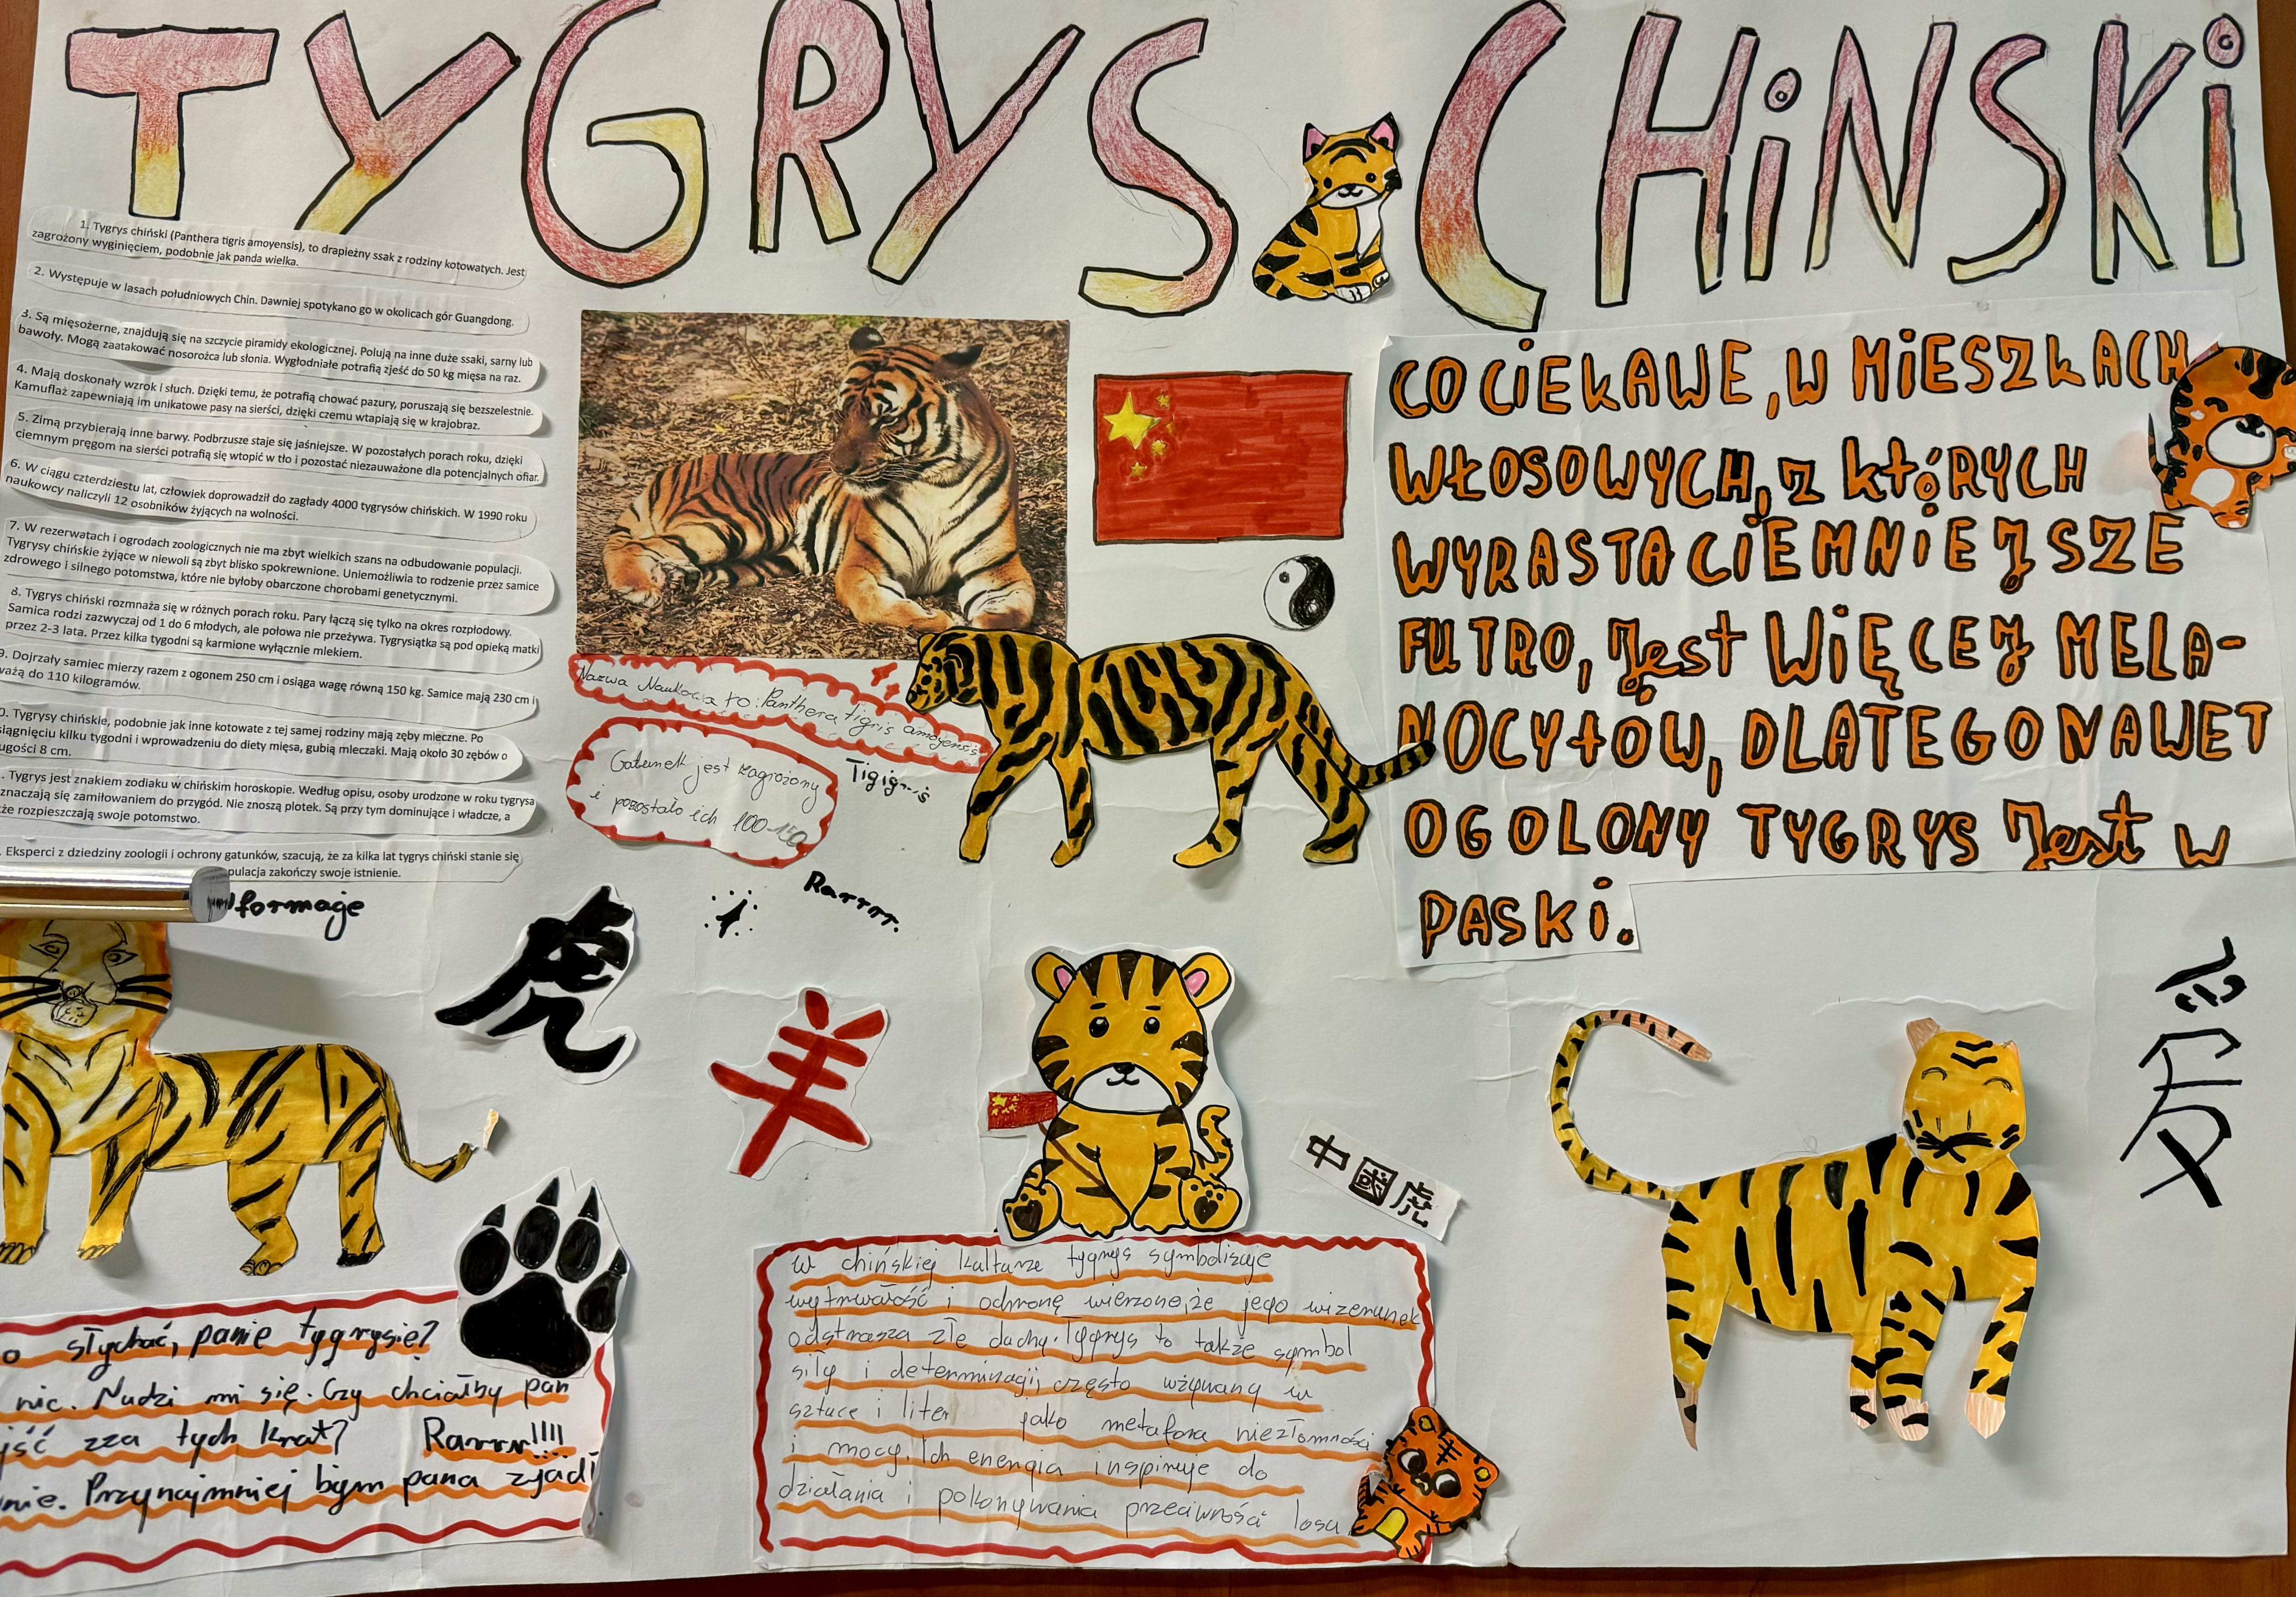 TYGRYS CHiNSKi
1. Tygrys chiński (Panthera tigris amoyensis), to drapieżny ssak z rodziny kotowatych. Jest
zagrożony wyginięciem, podobnie jak panda wielka.
2. Występuje w lasach południowych Chin. Dawniej spotykano go w okolicach gór Guangdong.
3. Są mięsożerne, znajdują się na szczycie piramidy ekologicznej. Polują na inne duże ssaki, sarny lub
bawoły. Mogą zaatakować nosorożca lub słonia. Wygłodniałe potrafią zjeść do 50 kg mięsa na raz.
4. Mają doskonały wzrok i słuch. Dzięki temu, że potrafią chować pazury, poruszają się bezszelestnie.
Kamuflaż zapewniają im unikatowe pasy na sierści, dzięki czemu wtapiają się w krajobraz.
5. Zimą przybierają inne barwy. Podbrzusze staje się jaśniejsze. W pozostałych porach roku, dzięki
ciemnym pręgom na sierści potrafią się wtopić w tło i pozostać niezauważone dla potencjalnych ofiar.
6. W ciągu czterdziestu lat, człowiek doprowadził do zagłady 4000 tygrysów chińskich. W 1990 roku
naukowcy naliczyli 12 osobników żyjących na wolności.
7. W rezerwatach i ogrodach zoologicznych nie ma zbyt wielkich szans na odbudowanie populacji.
Tygrysy chińskie żyjące w niewoli są zbyt blisko spokrewnione. Uniemożliwia to rodzenie przez samice
zdrowego i silnego potomstwa, które nie byłoby obarczone chorobami genetycznymi.
8. Tygrys chiński rozmnaża się w różnych porach roku. Pary łączą się tylko na okres rozpłodowy.
Samica rodzi zazwyczaj od 1 do 6 młodych, ale połowa nie przeżywa. Tygrysiątka są pod opieką matki
przez 2-3 lata. Przez kilka tygodni są karmione wyłącznie mlekiem.
9. Dojrzały samiec mierzy razem z ogonem 250 cm i osiąga wagę równą 150 kg. Samice mają 230 cm i
ważą do 110 kilogramów.
0. Tygrysy chińskie, podobnie jak inne kotowate z tej samej rodziny mają zęby mleczne. Po
siągnięciu kilku tygodni i wprowadzeniu do diety mięsa, gubią mleczaki. Mają około 30 zębów o
ugości 8 cm.
. Tygrys jest znakiem zodiaku w chińskim horoskopie. Według opisu, osoby urodzone w roku tygrysa
znaczają się zamiłowaniem do przygód. Nie znoszą plotek. Są przy tym dominujące i władcze, a
że rozpieszczają swoje potomstwo.
. Eksperci z dziedziny zoologii i ochrony gatunków, szacują, że za kilka lat tygrys chiński stanie się
pulacja zakończy swoje istnienie.
formaje
Nazwa Naukowa to: Panthera tigris amoyensis
Gatunek jest zagrożony
i pozostało ich 100-150
Rarrrr.
CO CiEKAWE, W MiESZKACH
WŁOSOWYCH, z któRYCH
WYRASTA CiEMNiEJSZE
FUTRO, Jest WiĘCEJ MELA-
NOCYtÓW, DLATEGO NAWET
OGOLONY TYGRYS Jest w
PASKi.
虎
羊
中國虎
爱
o słychać, panie tygrysie?
nic. Nudzi mi się. Czy chciałby pan
jść zza tych krat? Rarrrr!!!!
nie. Przynajmniej bym pana zjadł
W chińskiej kulturze tygrys symbolizuje
wytrwałość i ochronę wierzono, że jego wizerunek
odstrasza złe duchy. Tygrys to także symbol
siły i determinacji, często używany w
sztuce i liter jako metafora niezłomności
i mocy. Ich energia inspiruje do
działania i pokonywania przeciwności losu.